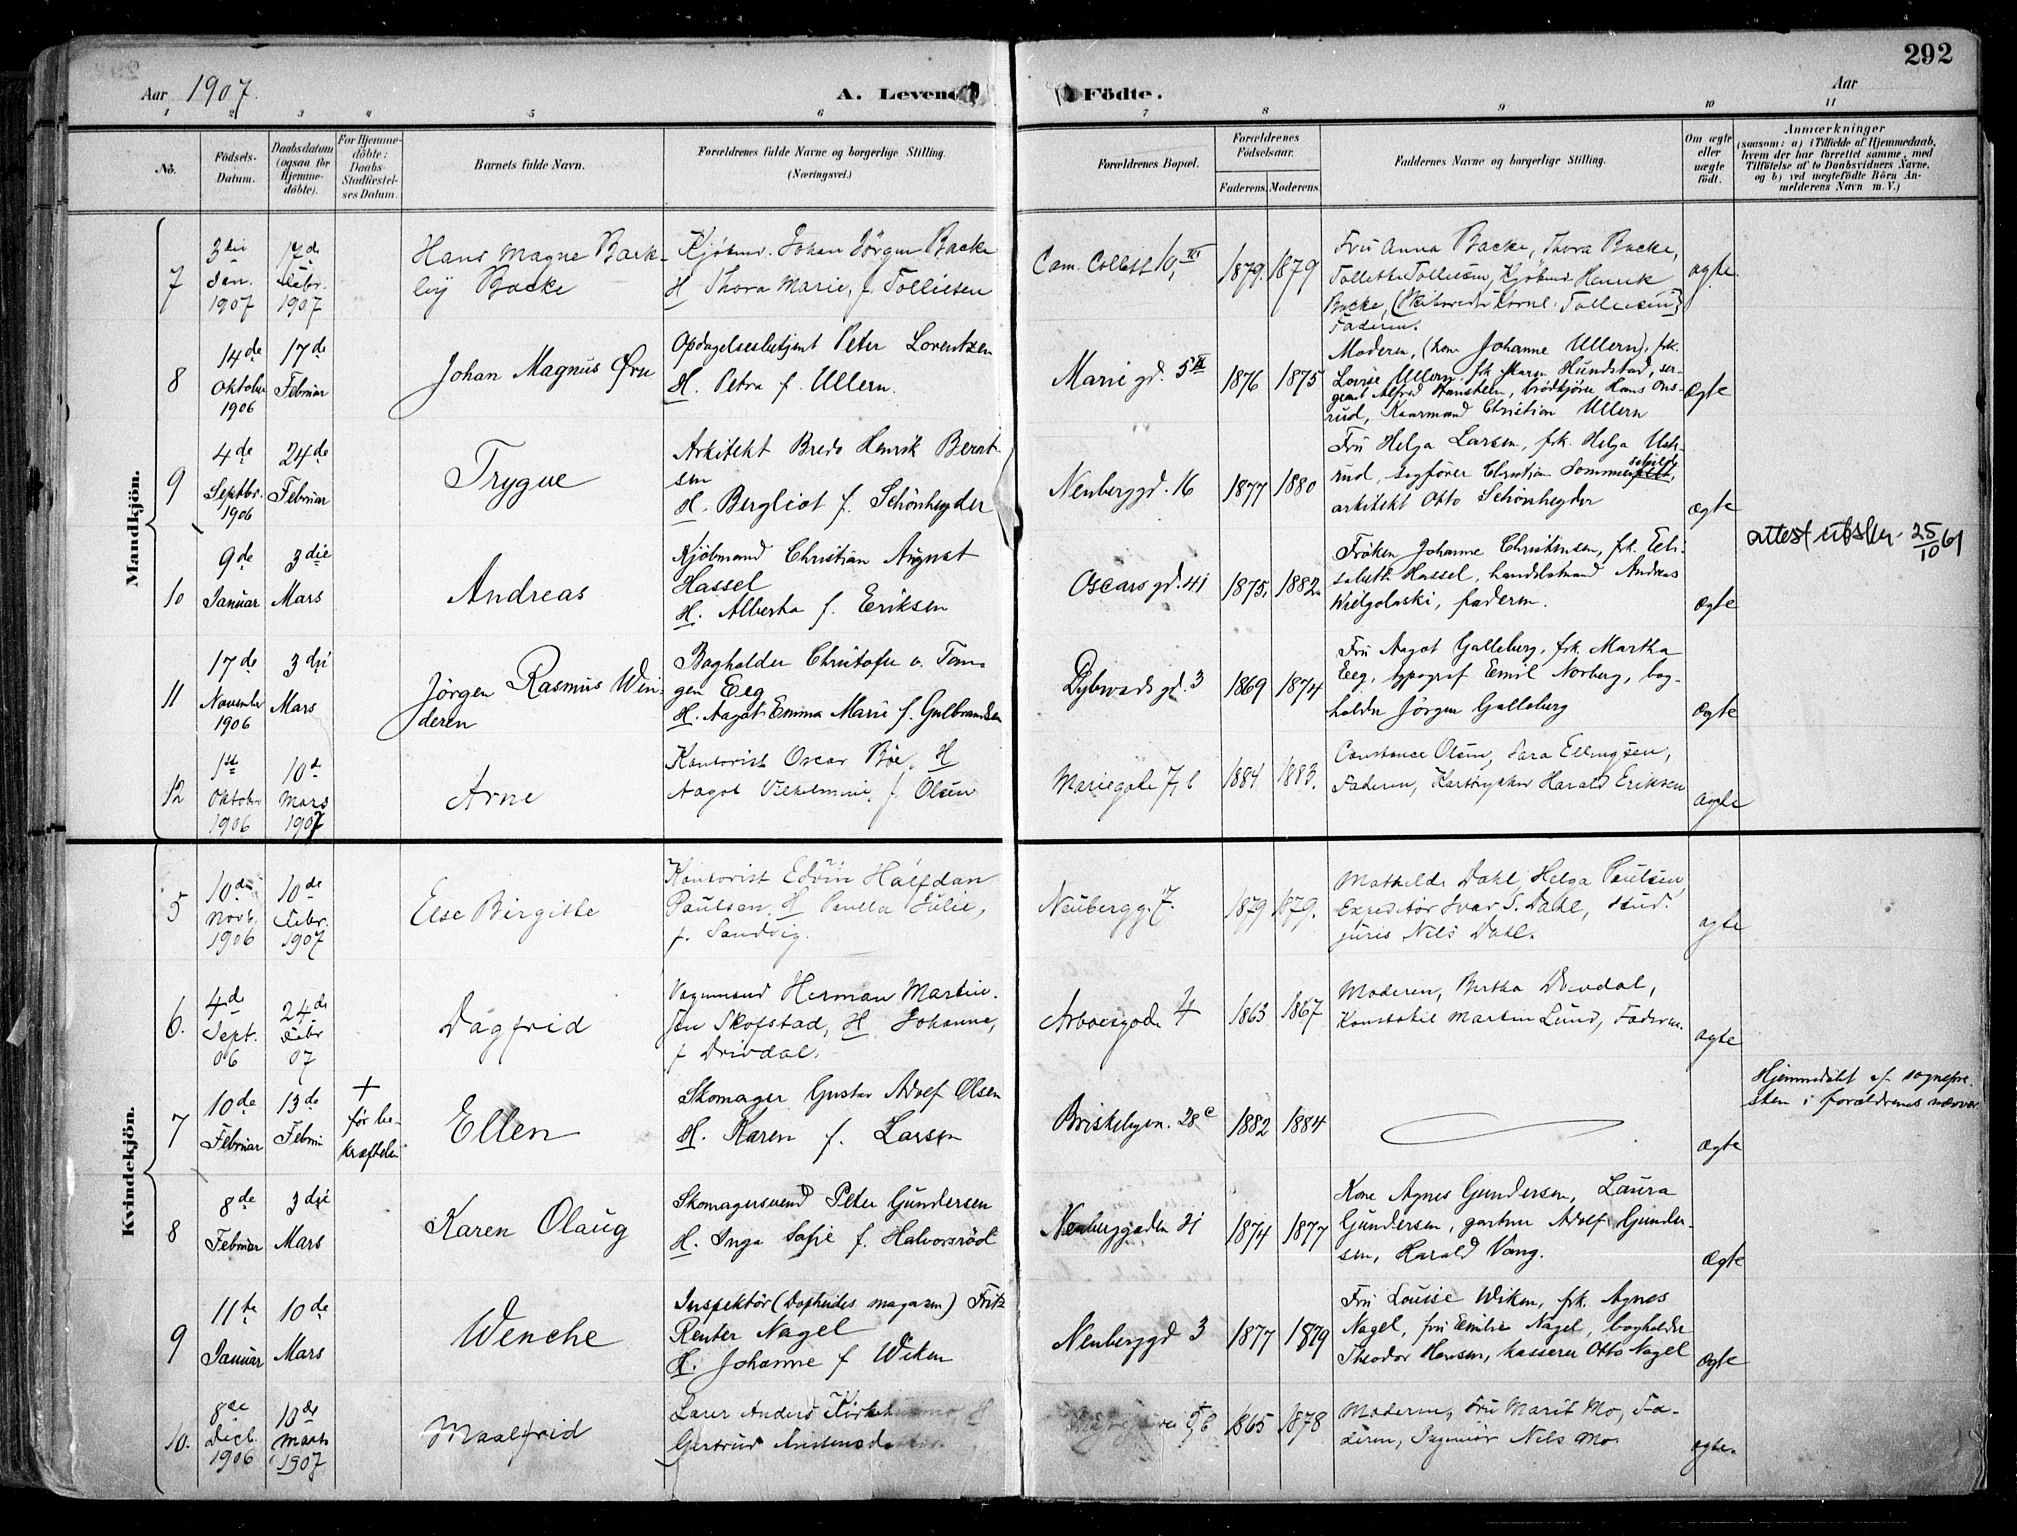 292
Aar 1907.
A. Levende Födte.
Aar
1 2 3 4 5 6 7 8 9 10 11
No.
Födsels-
Datum.
Daabsdatum
(ogsaa for
Hjemme-
döbte).
For Hjemme-
döbte:
Daabs-
Stadfæstel-
ses Datum.
Barnets fulde Navn.
Forældrenes fulde Navne og borgerlige Stilling.
(Næringsvei.)
Forældrenes Bopæl.
Forældrenes
Födselsaar.
Faderens. Moderens.
Faddernes Navne og borgerlige Stilling.
Om ægte
eller
uægte
födt.
Anmærkninger
(saasom: a) i Tilfælde af Hjemmedaab,
hvem der har forrettet samme, med
Tilföielse af to Daabsvidners Navne,
og b) ved uægtefödte Börn An-
melderens Navn m. V.)
Mandkjön.
7
3die
Jan.
1907
17de
Febr.
1907
Hans Magne
Backe
Kjöbmd. Johan Jörgen Backe
H Thora Marie, f. Tollefsen
Cam. Collett 10, III
1879. 1879
Fru Anna Backe, Thora Backe,
Kjöbmd. Henrik
Backe,
Faderen.
ægte.
8
14de
Oktober
1906
17de
Februar
Johan Magnus Ørn
Opdagelsesbetjent Peter Lorentzen
H. Petra f. Ullern.
Marie gd. 5 II
1876 1875
Moderen, (kone Johanne Ullern), frk.
Lovise Ullern, frk. Maren Hundstad, ser-
geant Alfred brödkjörer Hans Ons-
rud, Christian Ullern
ægte
9
4de
Septbr.
1906
24de
Februar
Trygve
Arkitekt Bredo Henrik Bernt-
sen
H. Bergliot f. Schönheyder
Neuberggd. 16
1877 1880
Fru Helga Larsen, frk. Helga
rud, sagförer Christian
arkitekt Otto Schönheyder
ægte
10
9de
Januar
3die
Mars
Andreas
Kjöbmand Christian August
Hassel
H. Alberta f. Eriksen
Oscars gd. 41
1875, 1882.
Fröken Johanne Christensen, frk. Eli-
sabeth Hassel, handelsmand Andreas
Wielgolaski, faderen.
ægte
attest utsten. 25/10 61
11
17de
November
1906
3die
Mars
Jörgen Rasmus Win-
deren
Bogholder Christofer v. Tan-
gen Eeg
H. Aagot Emma Marie f. Gulbrandsen
Dybwads gd. 3
1869 1874
Fru Aagot Galleberg, frk. Martha
Eeg, typograf Emil Norberg, bog-
holder Jörgen Galleberg
ægte
12
1ste
Oktober
1906
10de
Mars
1907
Arne
Kontorist Oscar Böe, H
Aagot Vilhelmine, f. Olsen
Mariegade 7, b
1884 1883.
Constance Olsen, Sara Ellingsen,
Faderen, Harald Eriksen
ægte
Kvindekjön.
5
10de
Novb.
1906
10de
Febr.
1907
Else Birgitte
Kontorist Edvin Halfdan
Paulsen, H Paulla Julie,
f. Sandvig.
Neubergg. 7.
1879 1879.
Mathilde Dahl, Helga Paulsen,
Expeditör Ivar S. Dahl, stud.
juris Nils Dahl.
ægte
6.
4de
Sept.
06
24de
Febr
07
Dagfrid
Vognmand Herman Martin-
sen Skofstad, H Johanne,
f Drivdal.
Arboesgade 4
1863 1867
Moderen, Bertha Drivdal,
Konstabel Martin Lund, Faderen.
ægte
7
10de
Februar
13de
Febru
+
før be-
kræftelse
Ellen
Skomager Gustav Adolf Olsen
H. Karen f. Larsen
Briskebyvn. 28 c
1882 1884
ægte
Hjemmedøbt af sognepræ-
sten i forældrenes nærvær
8
8de
Februar
3die
Mars
Karen Olaug
Skomagersvend Peter Gundersen
H. Inga Sofie f. Halvorsröd
Neuberggaden 21
1874 1877
Kone Agnes Gundersen, Laura
Gundersen, gartner Adolf Gunder-
sen, Harald Vang.
ægte
9
11te
Januar
10de
Mars
Wenche
Inspektör (Dopheides magasin) Fritz
Reuter Nagel
H. Johanne f Wiken
Neuberggd 3
1877 1879
Fru Louise Wiken, frk. Agnes
Nagel, fru Emilie Nagel, bogholder
Theodor Hansen, kasserer Otto Nagel
ægte
10.
8de
Decb.
1906
10de
Mars
1907
Maalfrid
Lærer Anders H
Gertrud
5 b
1865 1878
Moderen, Fru Marit Mo, Fa-
deren, Ingeniör Nils Mo.
ægte.